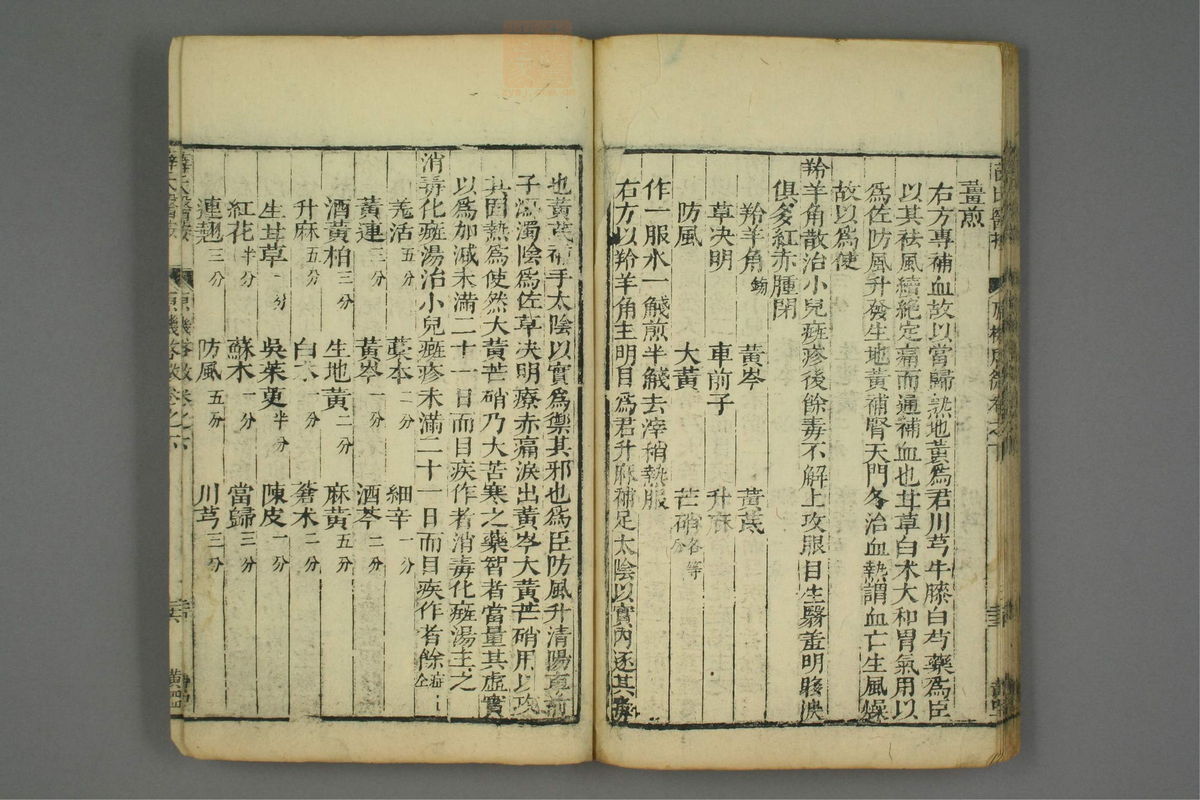 薑煎
右方專補血故以當歸熟地黃為君川芎牛膝白芍藥為臣
以其祛風續絕定痛而通補血也甘草白朮大和胃氣用以
為佐防風升發生地黃補腎天門冬治血熱謂血亡生風燥
故以為使
羚羊角散治小兒癍疹後餘毒不解上攻眼目生翳羞明眵淚
俱多紅赤腫閉
羚羊角鎊 黃岑 黃芪
草决明 車前子 升麻
防風 大黃 芒硝各等分
作一服水一盞煎半盞去滓稍熱服
右方以羚羊角主明目為君升麻補足太陰以實內逐其毒
也黃芪補手太陰以實為禦其邪也為臣防風升清陽車前
子瀉濁陰為佐草决明療赤痛淚出黃岑大黃芒硝用以攻
其固熱為使然大黃芒硝乃大苦寒之藥智者當量其虛實
以為加減未滿二十一日而目疾作者消毒化癍湯主之
消毒化癍湯治小兒癍疹未滿二十一日而目疾作者餘
羗活五分 藁本二分 細辛一分
黃連三分 黃岑一分 酒芩二分
酒黃柏三分 生地黃二分 麻黃五分
升麻五分 白朮一分 蒼朮二分
生甘草一分 吳茱萸半分 陳皮一分
紅花半分 蘇木一分 當歸三分
連翹三分 防風五分 川芎三分
原機啓微卷之六